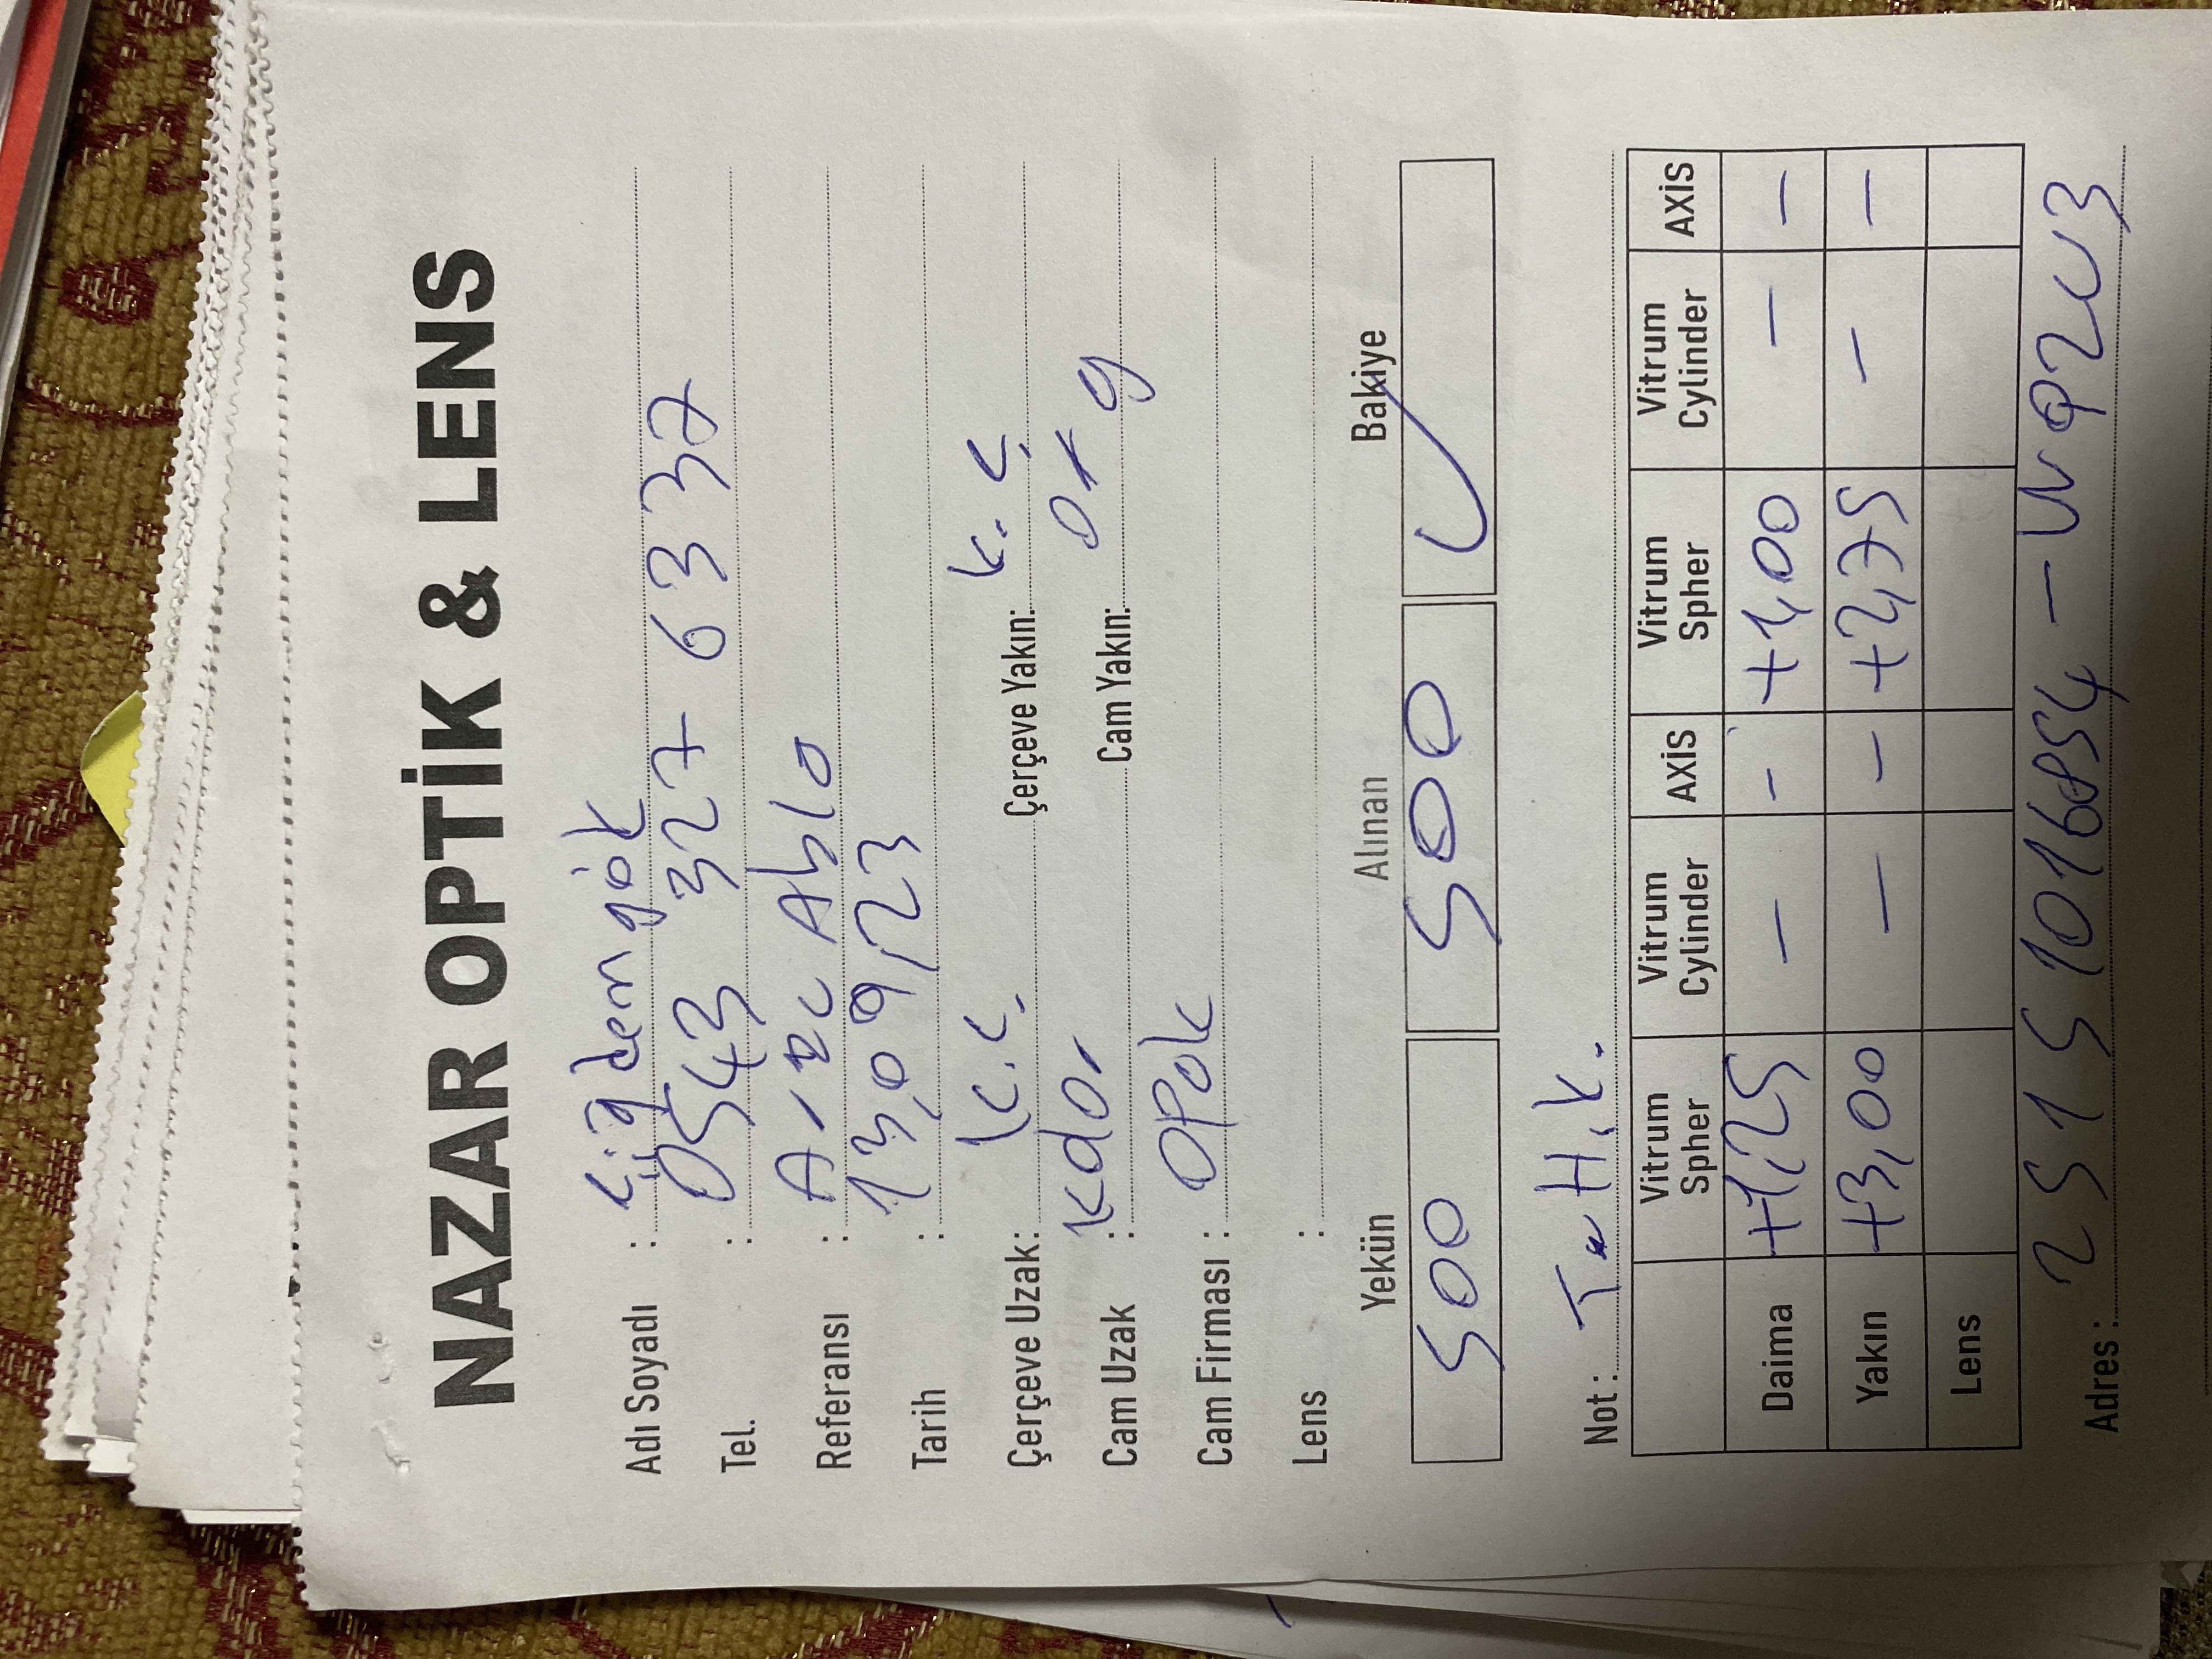 NAZAR OPTİK & LENS
Adı Soyadı : Çiğdem gök
Tel. : 0543 327 6337
Referansı : Arzu Abla
Tarih : 13,09,23
Çerçeve Uzak: K.Ç. Çerçeve Yakın: K.Ç
Cam Uzak : Cam Yakın: org
Cam Firması : opak
Lens :
Yekün Alınan Bakiye
500 500 ✓
Not : T.H.K.
Vitrum Spher Vitrum Cylinder AXİS Vitrum Spher Vitrum Cylinder AXİS
Daima +1,25 — - +1,00 — —
Yakın +3,00 — - +2,75 — —
Lens
Adres : 25151016854 -